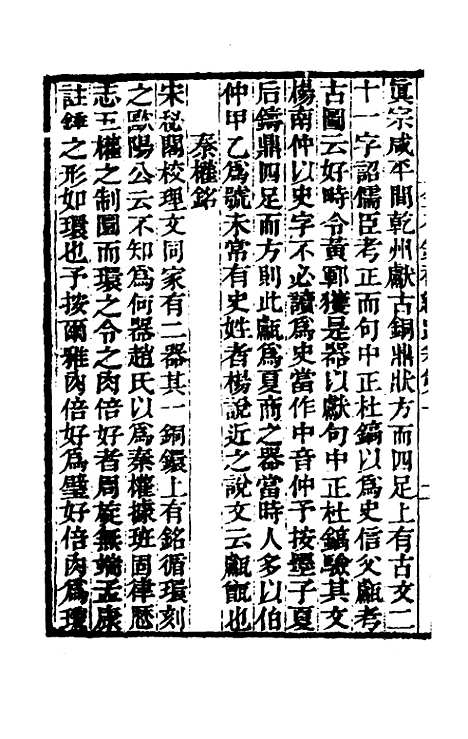 真宗咸平間乾州獻古銅鼎狀方而四足上有古文二
十一字詔儒臣考正而句中正杜鎬以為史信父甗考
古圖云好時令黃鄆獲是器以獻句中正杜鎬驗其文
楊南仲以史字不必讀為史當作中音仲予按墨子夏
后鑄鼎四足而方則此甗為夏商之器當時人多以伯
仲甲乙為號未常有史姓者楊說近之說文云甗甑也
秦權銘
宋秘閣校理文同家有二器其一銅鐶上有銘循環刻
之歐陽公云不知為何器趙氏以為秦權據班固律歷
志五權之制圜而環之令之肉倍好者周旋無端孟康
註錘之形如環也予按爾雅肉倍好為璧好倍肉為瑗